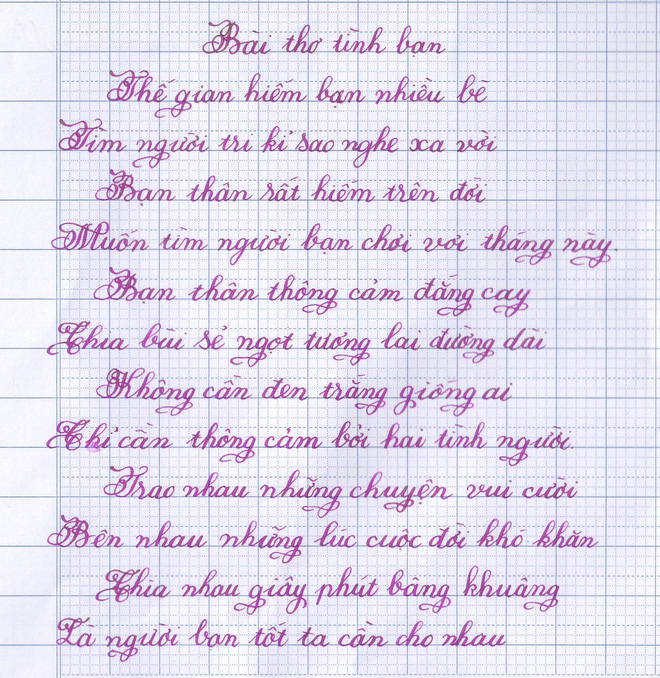 Bài thơ tình bạn
Thế gian hiếm bạn nhiều bè
Tìm người tri kỉ sao nghe xa vời
Bạn thân rất hiếm trên đời
Muốn tìm người bạn chơi vơi tháng này.
Bạn thân thông cảm đắng cay
Chia bùi sẻ ngọt tương lai đường dài
Không cần đen trắng giống ai
Chỉ cần thông cảm bởi hai tình người.
Trao nhau những chuyện vui cười
Bên nhau những lúc cuộc đời khó khăn
Chia nhau giây phút bâng khuâng
Là người bạn tốt ta cần cho nhau